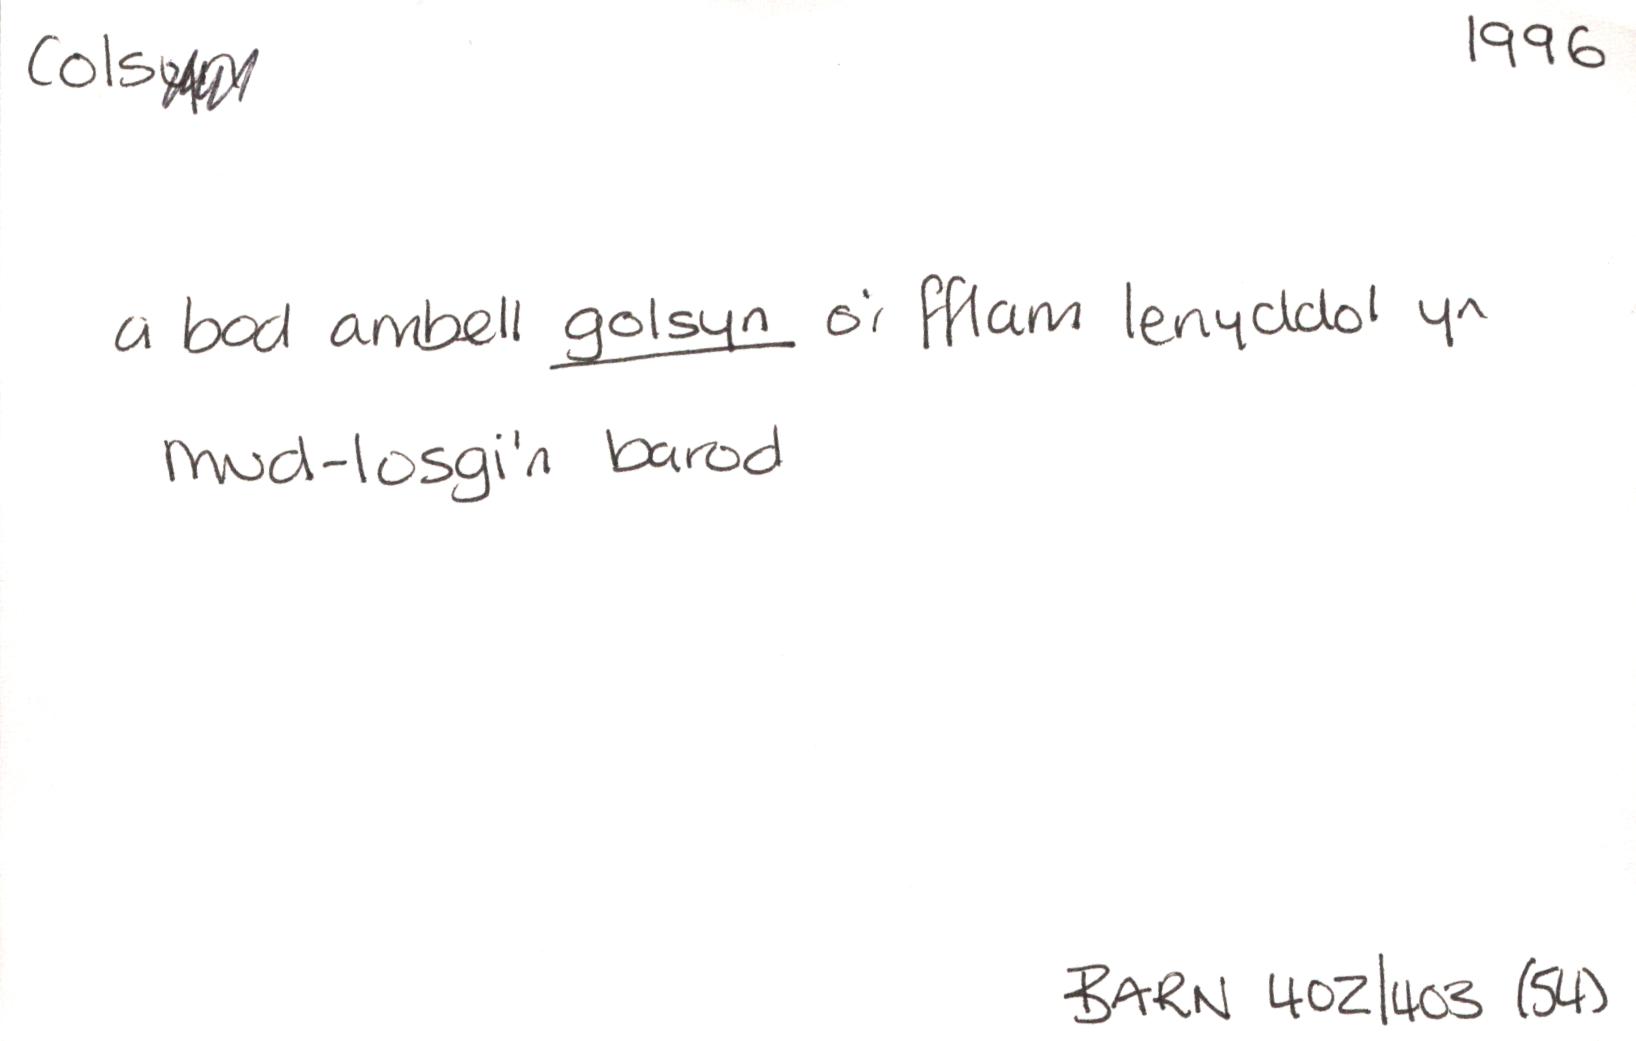 Cols
1996
a bod ambell golsyn o'i fflam lenyddol yn
mud-losgi'n barod
BARN 402/403 (54)